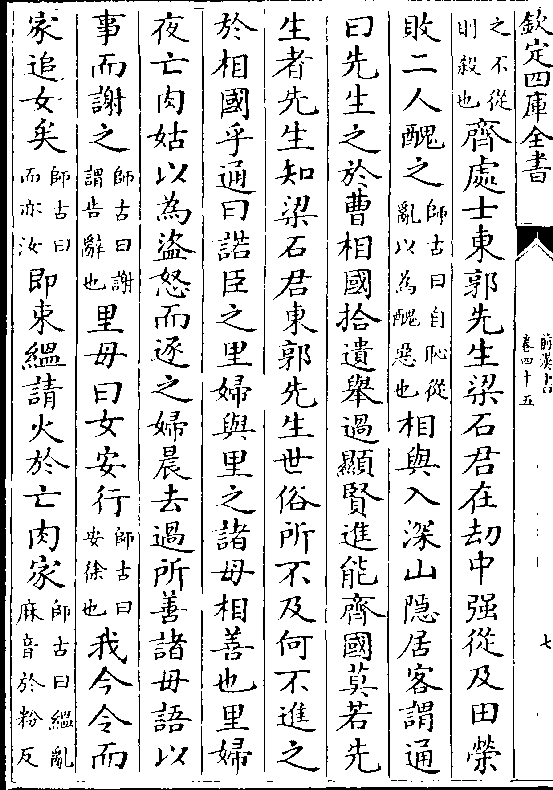 欽定四庫全書
前漢書
卷四十五
七
之不從則殺也齊處士東郭先生梁石君在刼中强從及田榮
敗二人醜之師古曰自恥從亂以為醜惡也相與入深山隱居客謂通
曰先生之於曹相國拾遺舉過顯賢進能齊國莫若先
生者先生知梁石君東郭先生世俗所不及何不進之
於相國乎通曰諾臣之里婦與里之諸母相善也里婦
夜亡肉姑以為盜怒而逐之婦晨去過所善諸母語以
事而謝之師古曰謝謂告辭也里母曰女安行師古曰安徐也我今令而
家追女矣師古曰而亦汝即束緼請火於亡肉家師古曰緼亂麻音於粉反